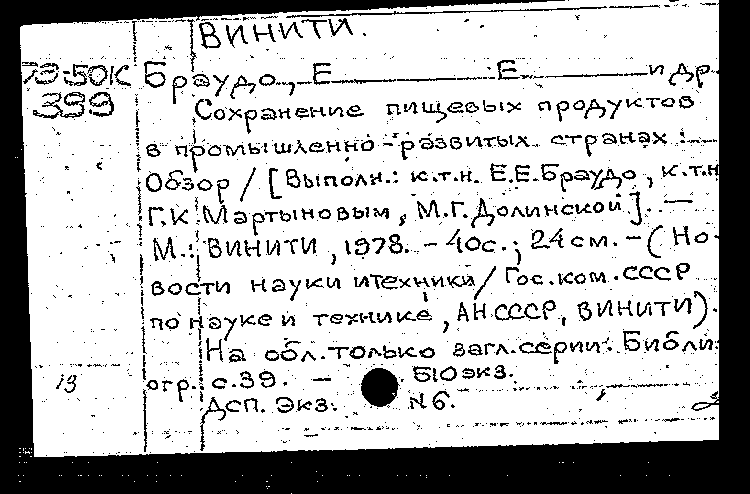 ВИНИТИ.
79:50К Браудо, Е Е и др
399 Сохранение пищевых продуктов
в промышленно-развитых странах:
Обзор / [Выполн.: к.т.н. Е.Е.Браудо, к.т.н
Г.К Мартыновым, М.Г.Долинской]. —
М.: ВИНИТИ, 1978. – 40с.; 24см. – (Но-
вости науки и техники / Гос.ком.СССР
по науке и технике, АН СССР, ВИНИТИ).
На обл. только загл. серии. Библи-
13 огр.: с.39. — 510экз.
ДСП. Экз. N6.